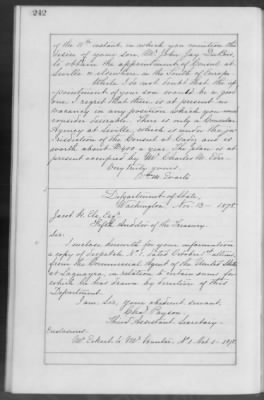 242
of the 11th instant, in which you mention the
desire of your son, Mr. John Jay
to obtain the appointment of Consul at
Seville or elsewhere in the South of Europe.
While I do not doubt that the ap-
pointment of your son would be a good
one, I regret that there is at present no
vacancy in any position which you would
consider desirable. There is only a Consular
Agency at Seville, which is under the ju-
risdiction of the Consul at Cadiz and is
worth about $900 a year. The place is at
present occupied by Mr. Charles W.
Very truly
Wm M. Evarts
Department of State,
Washington, Nov. 13 1878
Jacob H. Ela, Esq.
Fifth Auditor of the Treasury.
Sir:
I enclose herewith for your information
a copy of despatch No. 1 dated October
from the Commercial Agent of the United States
at Laguayra, in relation to certain sums for
which he has drawn by direction of this
Department.
I am, Sir, your obedient servant,
Chas Payson
Third Assistant Secretary
Enclosure:
Mr. to Mr. No. 1. 1878